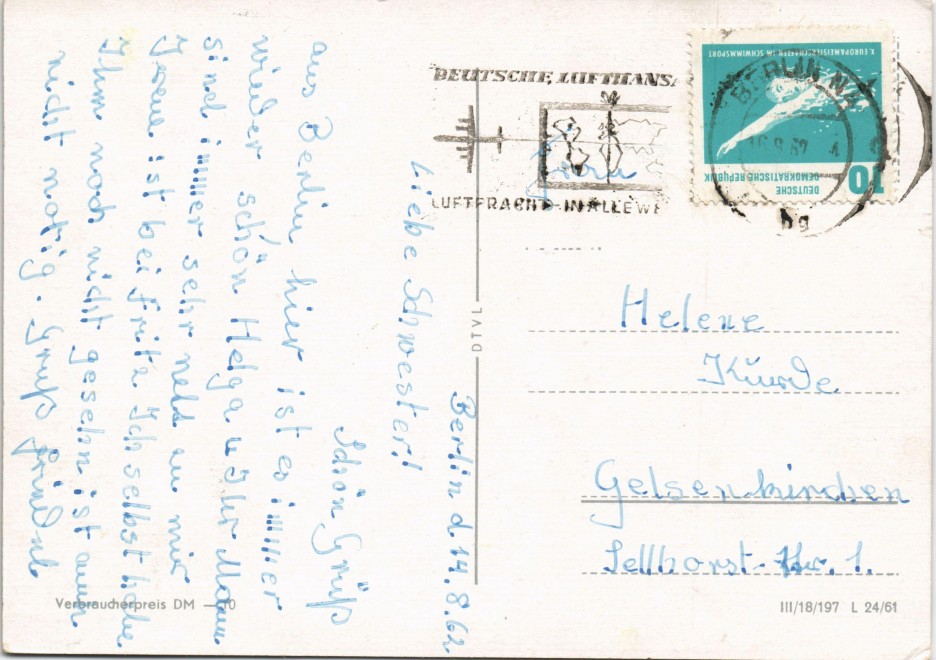 Berlin d. 14.8.62
Liebe Schwester!
Schön Grüß
aus Berlin hier ist es immer
wieder schön Helga u Ihr Mann
sind immer sehr nett zu mir
Irene ist bei Fritz Ich selbst habe
Ihm noch nicht gesehn ist auch
nicht nötig. Gruß
Frau
Helene
Kurde
Gelsenkirchen
Sellhorst Str. 1.
DEUTSCHE LUFTHANSA
LUFTFRACHT IN ALLE WE
BERLIN NA
16.8.62
bg
X. EUROPAMEISTERSCHAFTEN IM SCHWIMMSPORT
DEUTSCHE
DEMOKRATISCHE REPUBLIK
10
DTVL
Verbraucherpreis DM —,10
III/18/197 L 24/61